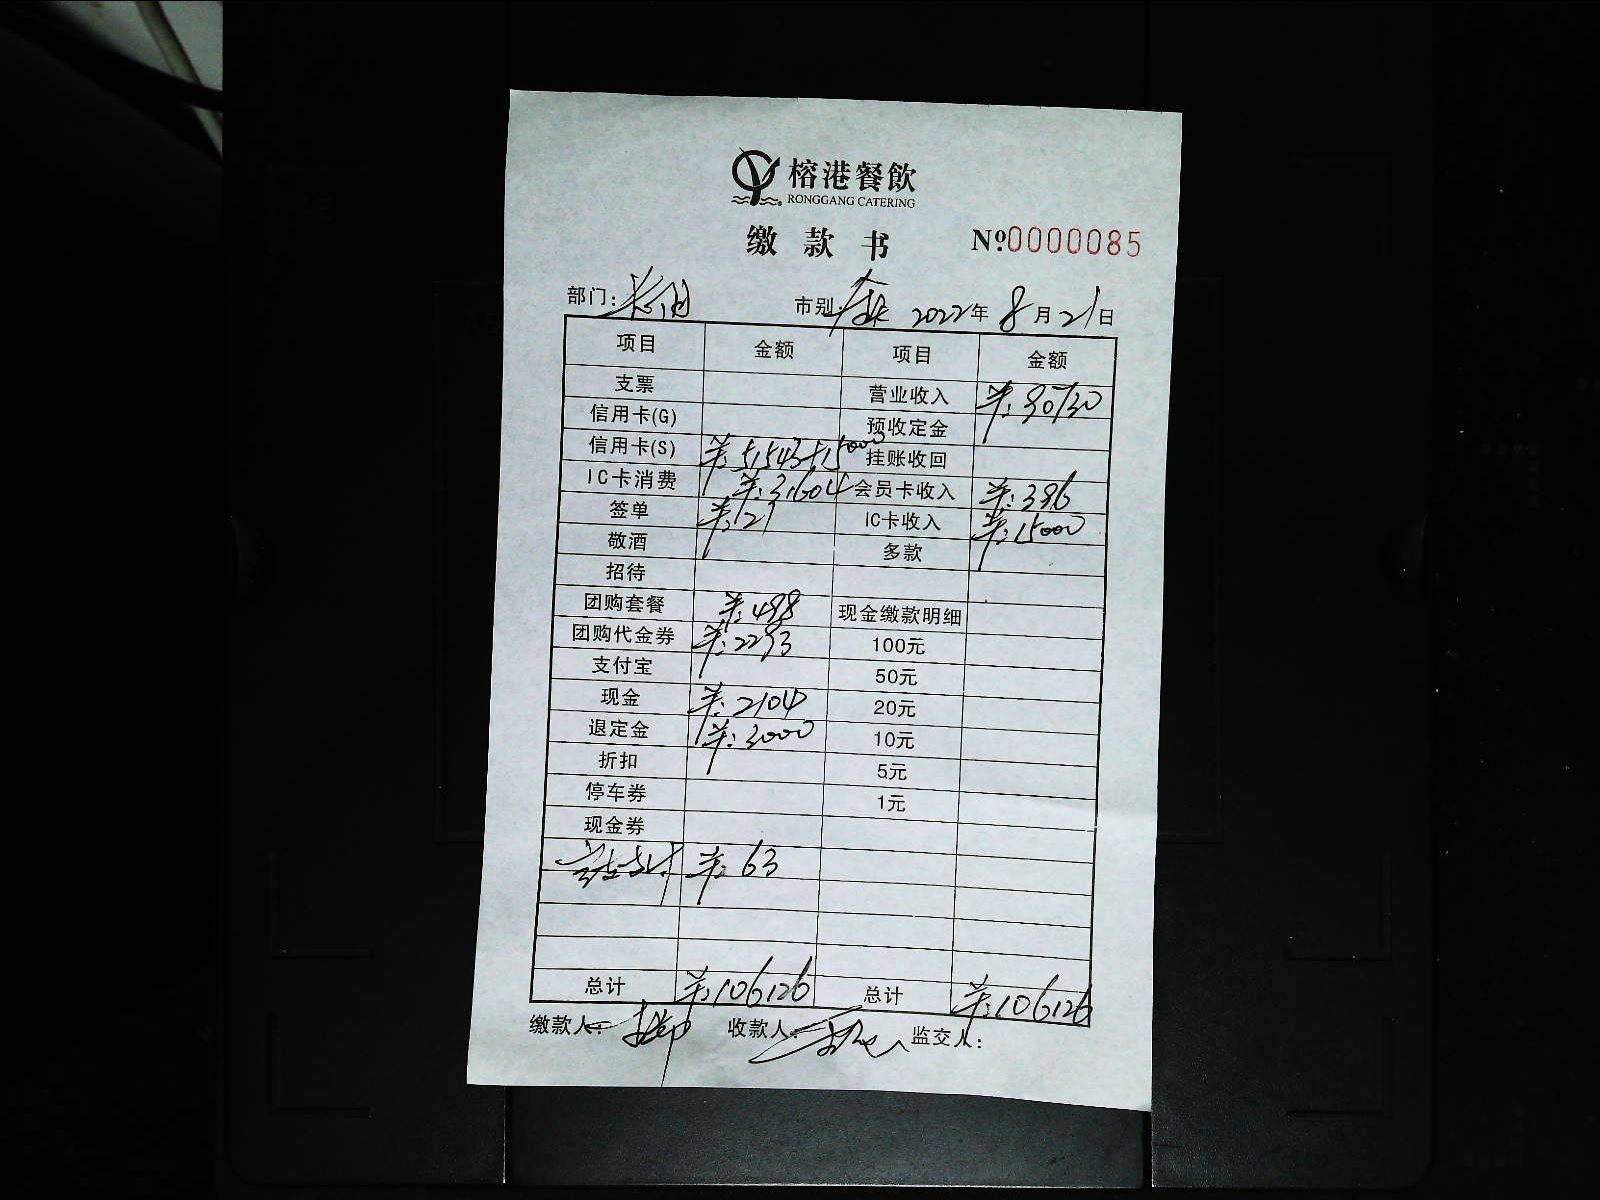 榕港餐飲
RONGGANG CATERING
缴款书 №0000085
部门: 市别: 2022年8月21日
项目 金额 项目 金额
支票 营业收入 羊:90730
信用卡(G) 预收定金
信用卡(S) 羊:51543+15000 挂账收回
IC卡消费 羊:31604 会员卡收入 羊:396
签单 羊:121 IC卡收入 羊:15000
敬酒 多款
招待
团购套餐 羊:498 现金缴款明细
团购代金券 羊:2293 100元
支付宝 50元
现金 羊:2104 20元
退定金 羊:3000 10元
折扣 5元
停车券 1元
现金券
羊:63
总计 羊:106126 总计 羊:106126
缴款人: 收款人: 监交人: